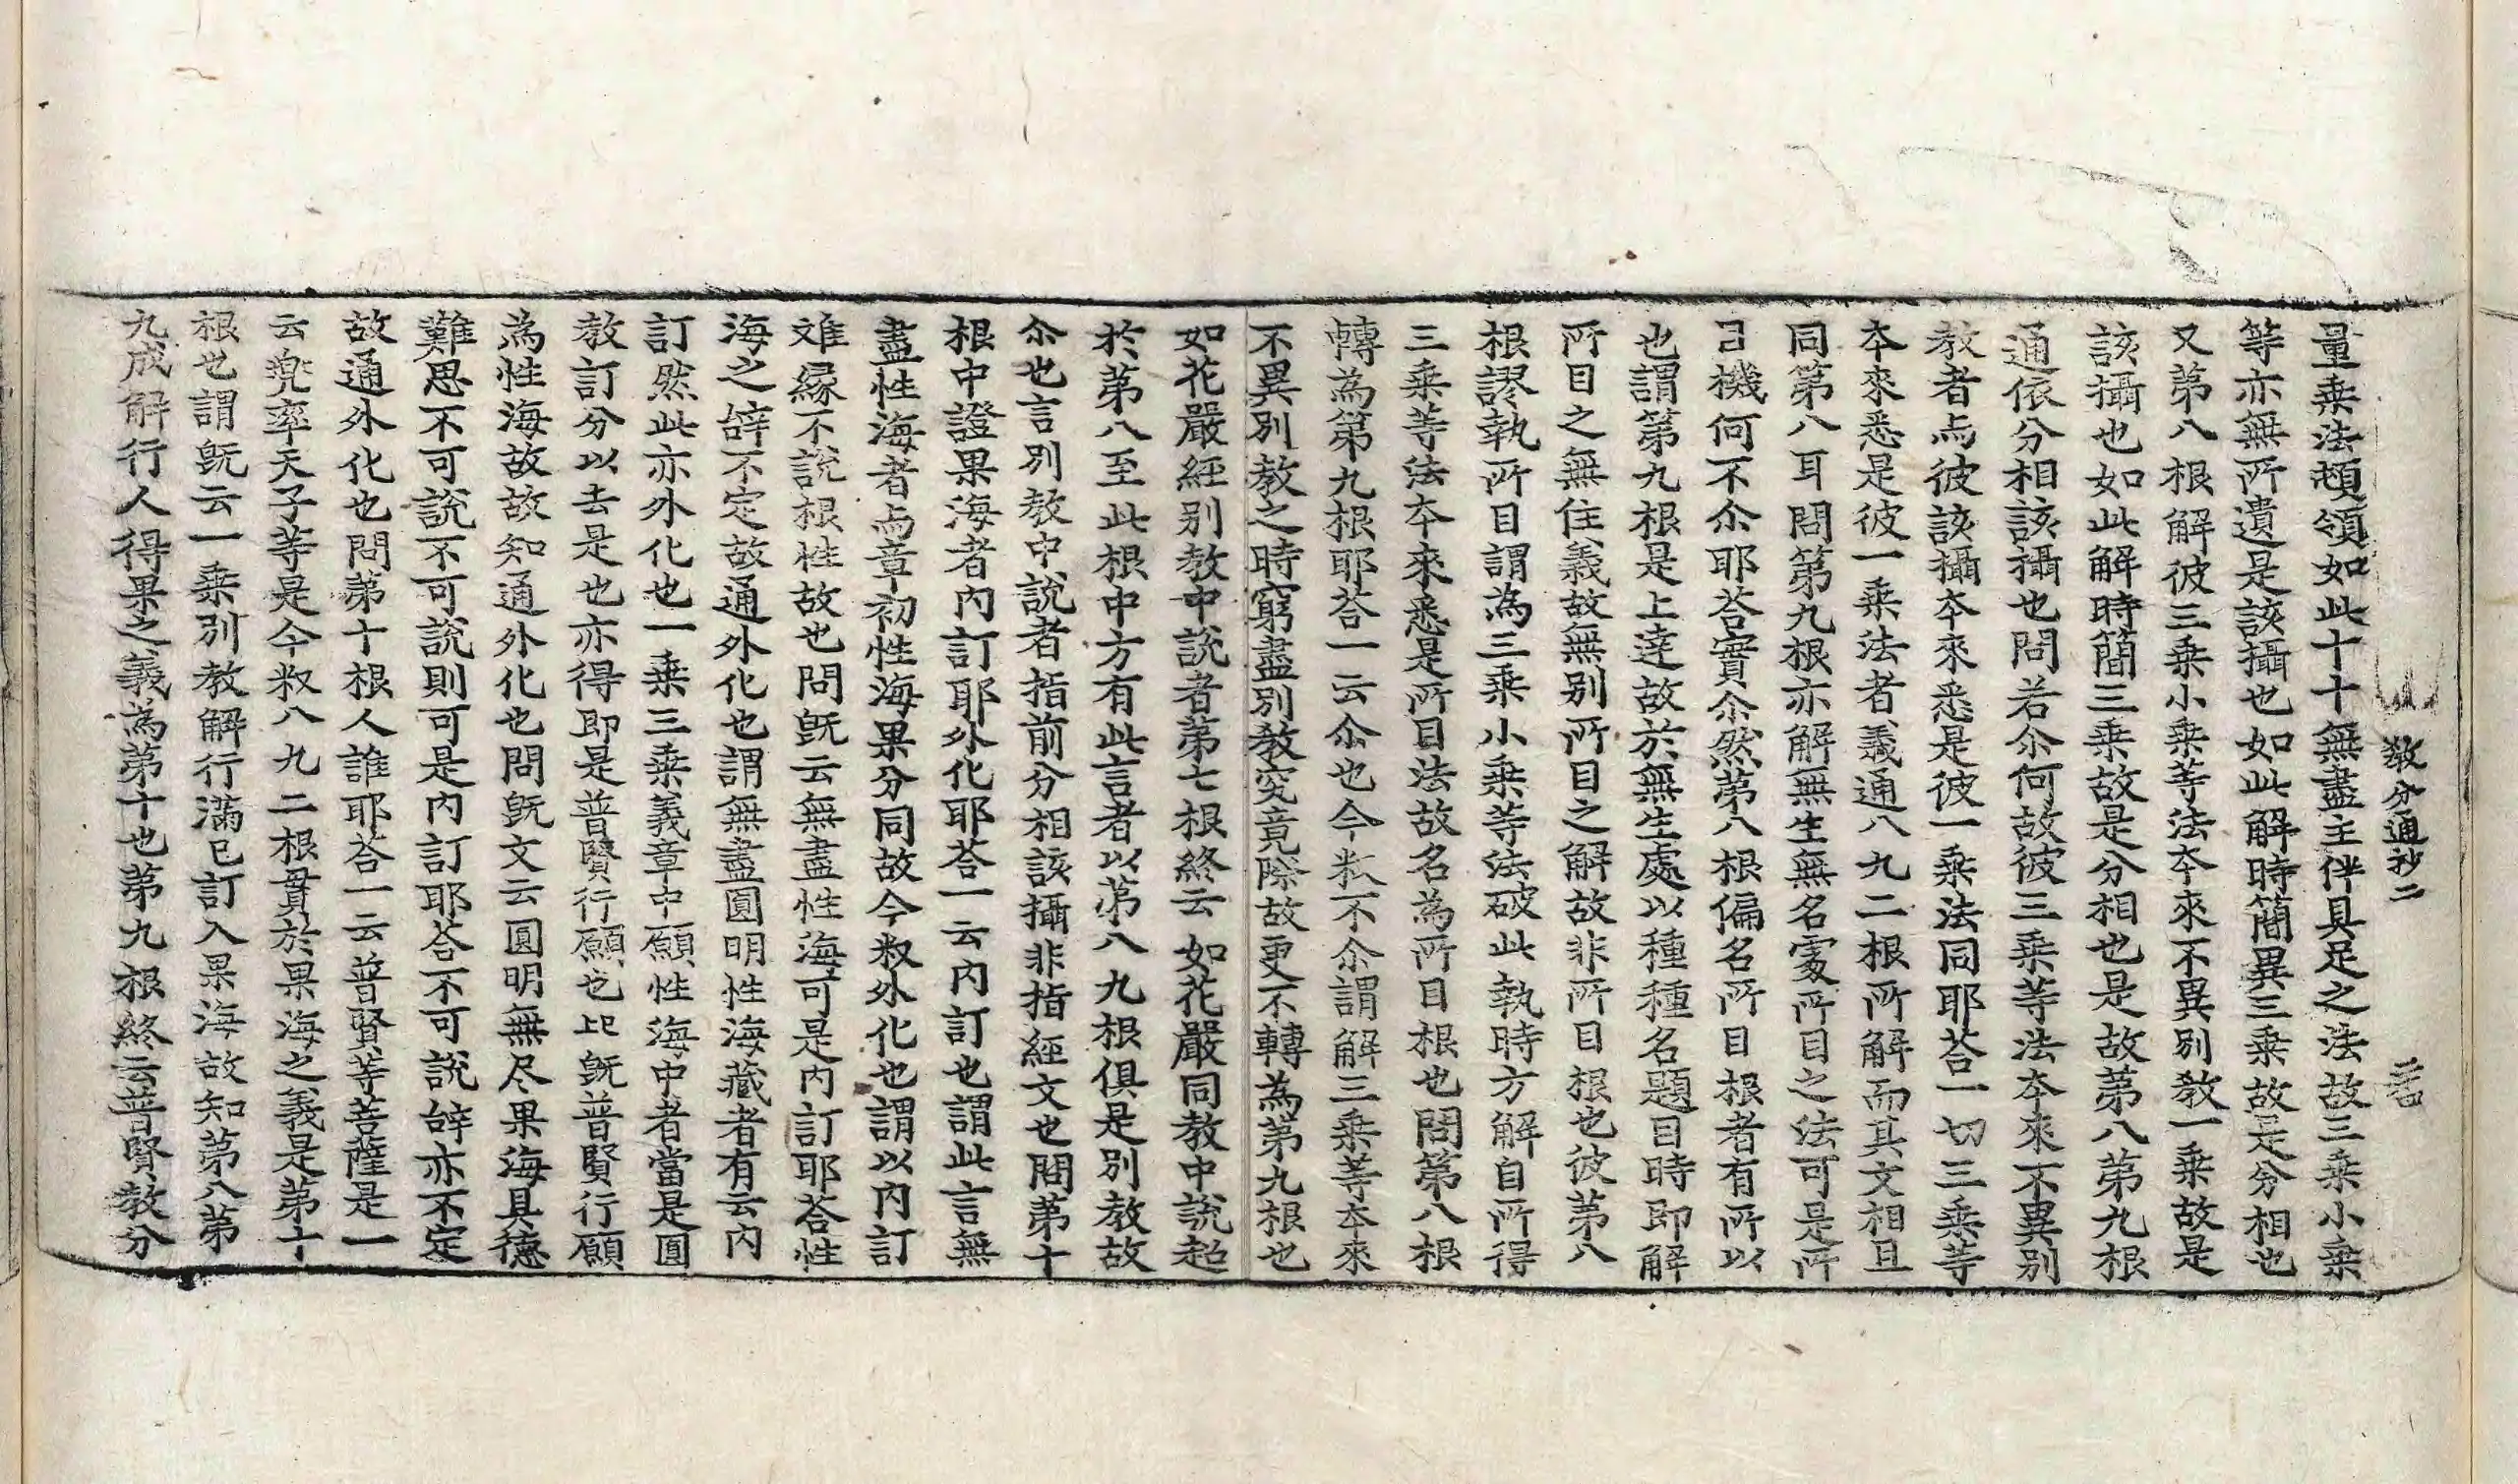 教分通抄二
量乗法頓領如此十十無盡主伴具足之法故三乗小乗
等亦無所遺是該攝也如此解時簡異三乗故是分相也
又第八根解彼三乗小乗等法夲來不異別教一乗故是
該攝也如此解時簡三乗故是分相也是故第八第九根
通依分相該攝也問若尒何故彼三乗等法夲來不異別
教者与彼該攝夲來悉是彼一乗法同耶荅一切三乗等
夲來悉是彼一乗法者義通八九二根所解而其文相且
同第八耳問第九根亦解無生無名處所目之法可是所
目機何不尒耶荅實尒然第八根偏名所目根者有所以
也謂第九根是上達故於無生處以種種名題目時即解
所目之無住義故無別所目之解故非所目根也彼第八
根謬執所目謂為三乗小乗等法破此執時方解自所得
三乗等法夲來悉是所目法故名為所目根也問第八根
轉為第九根耶荅一云尒也今釈不尒謂解三乗等夲來
不異別教之時窮盡別教究竟際故更不轉為第九根也
如花嚴經別教中說者第七根終云如花嚴同教中說起
於第八至此根中方有此言者以第八九根俱是別教故
尒也言別教中說者指前分相該攝非指經文也問第十
根中證果海者內訂耶外化耶荅一云內訂也謂此言無
盡性海者与章初性海果分同故今釈外化也謂以內訂
難縁不說根性故也問旣云無盡性海可是內訂耶荅性
海之辝不定故通外化也謂無盡圓明性海藏者有云內
訂然此亦外化也一乗三乗義章中願性海中者當是圓
教訂分以去是也亦得即是普賢行願也旣普賢行願
為性海故故知通外化也問旣文云圓明無尽果海具德
難思不可說不可說則可是內訂耶荅不可說辝亦不定
故通外化也問第十根人誰耶荅一云普賢等菩薩是一
云兜率天子等是今釈八九二根貫於果海之義是第十
根也謂旣云一乗別教解行滿已訂入果海故知第八第
九成解行人得果之義為第十也第九根終云普賢教分